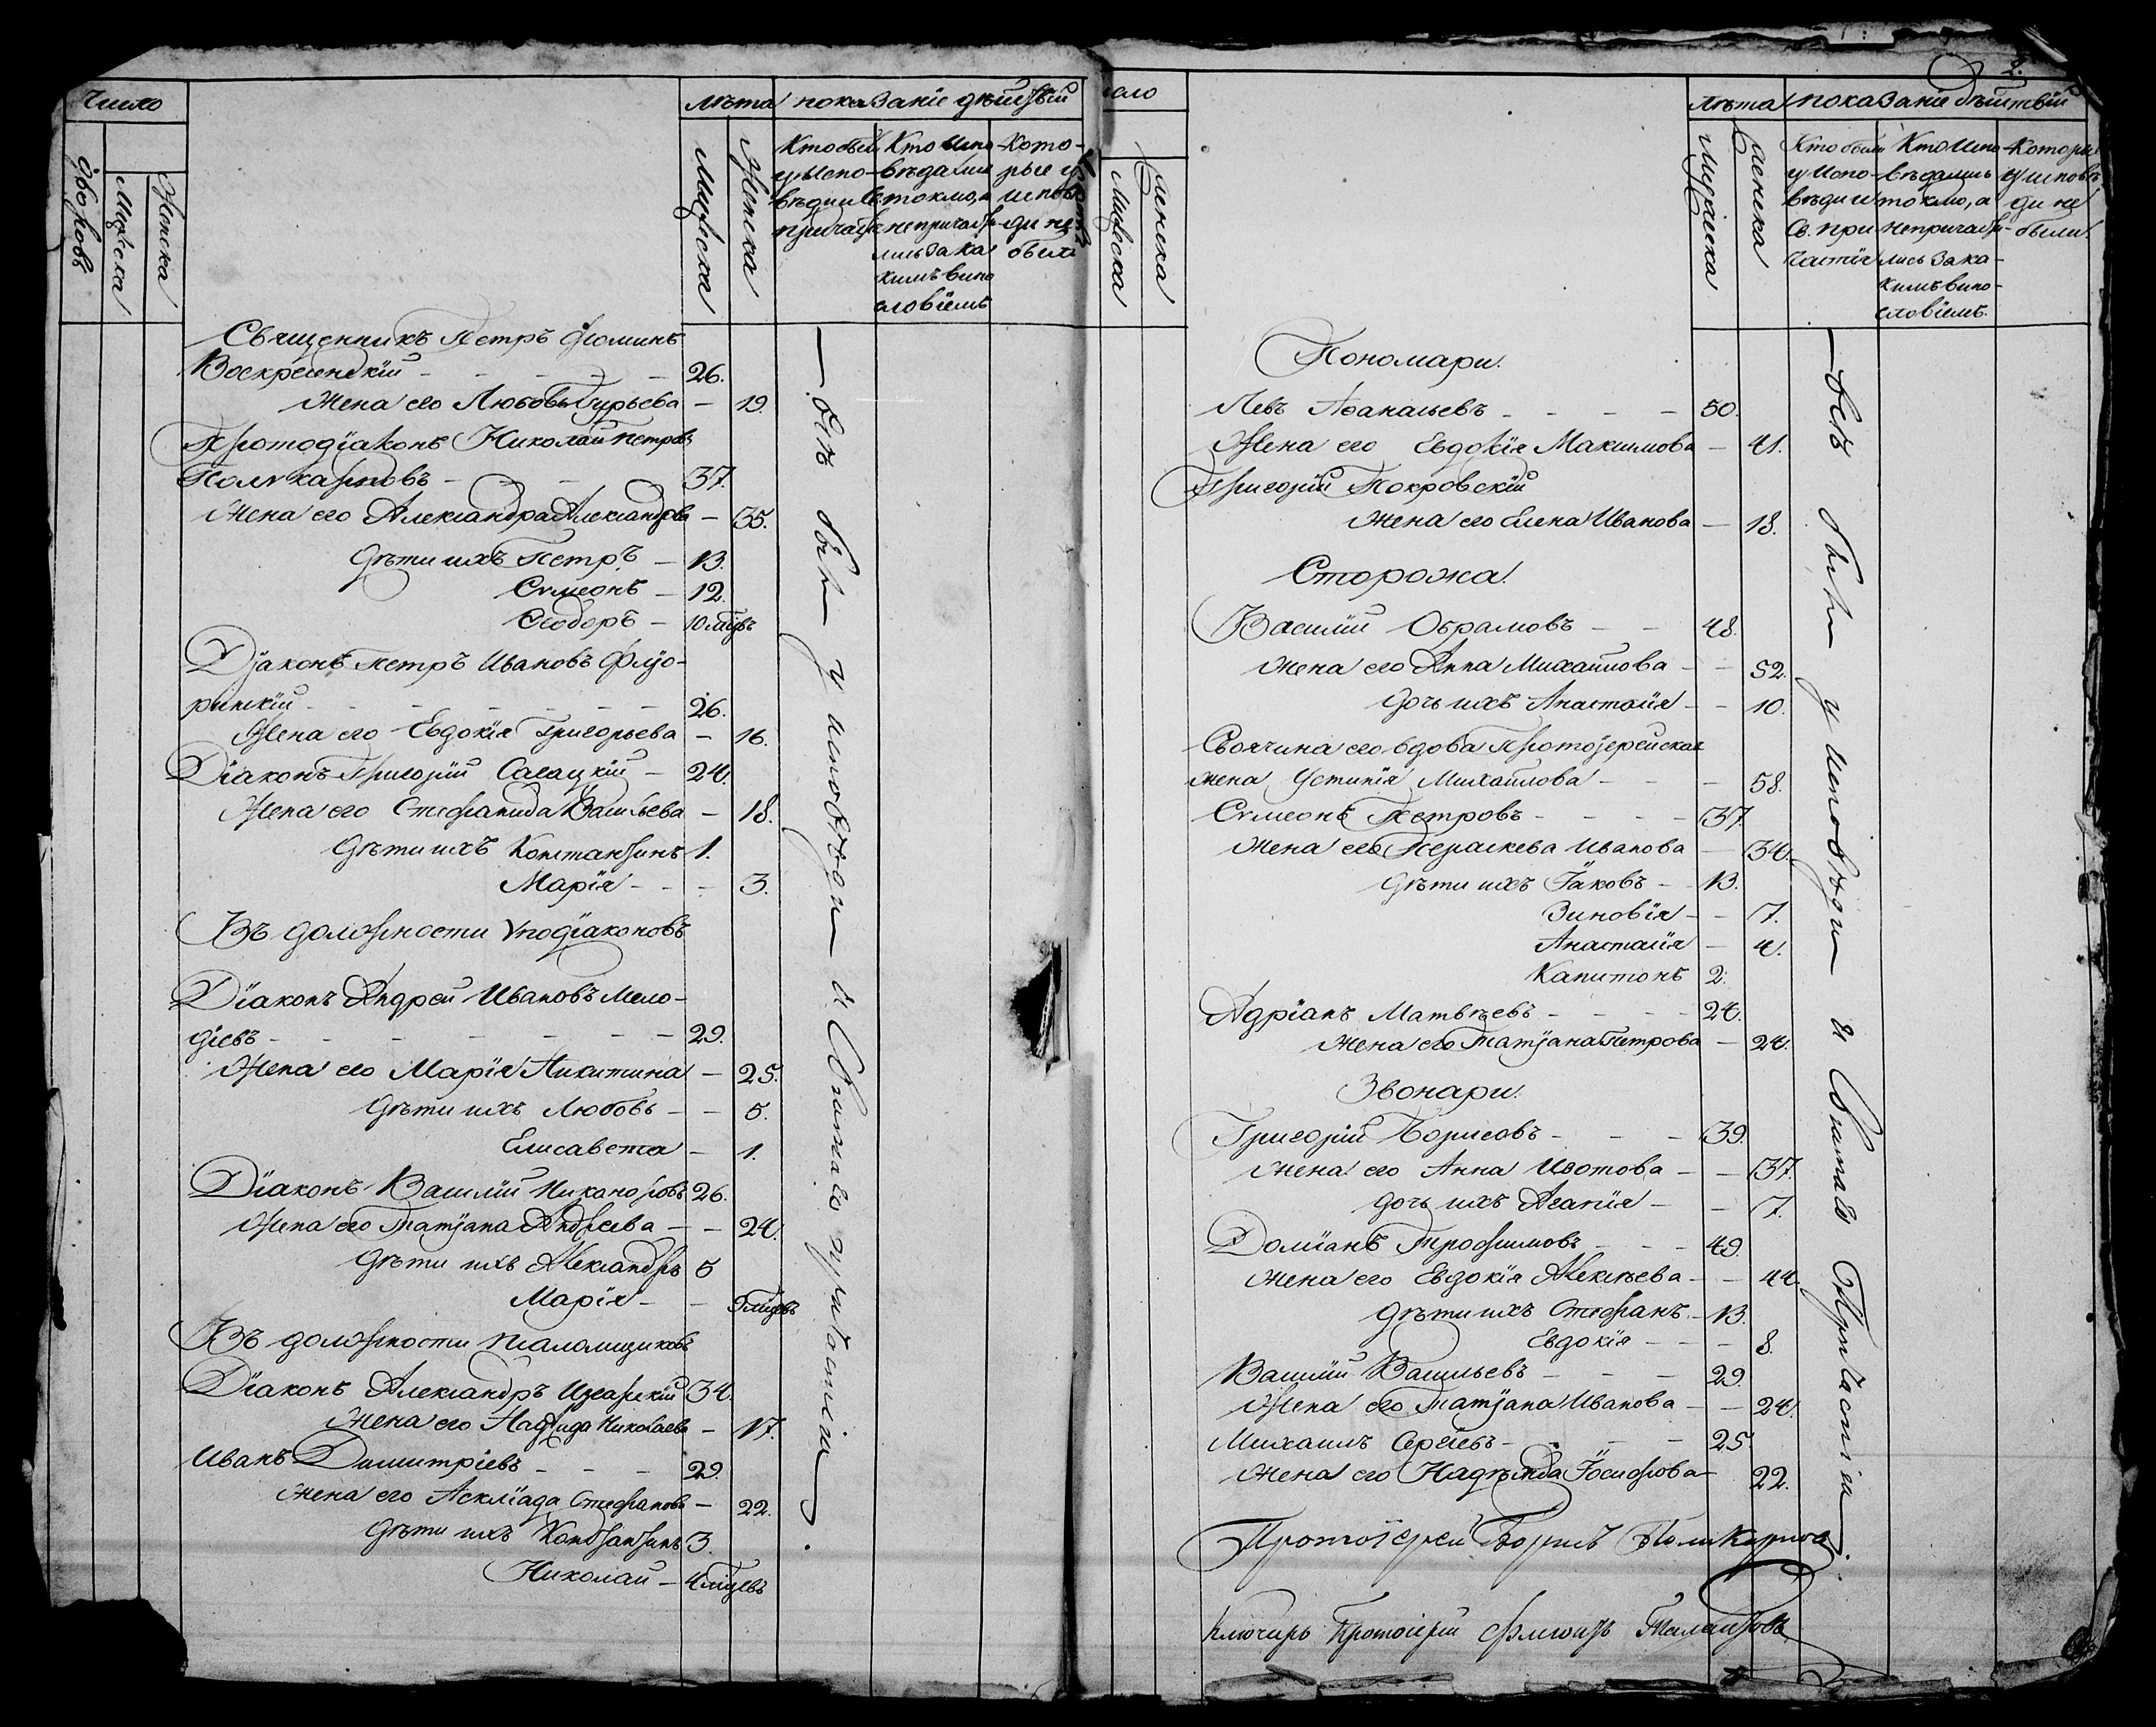 Число
Дворовъ
Мужеска
Женска
Лѣта
показаніе дѣйствій
Мужеска
Женска
Кто были
у Испо-
вѣди и Св.
причастія
Кто Испо-
вѣдались
токмо, а
не причасти-
лись за ка
кимъ вино
словіемъ
Кото-
рые у
испов
ди не
были
Священникъ Петръ Фоминъ
Воскресенскій - 26.
Жена его Любовь Гурьева - 19.
Протодіаконъ Николай Петровъ
Поликарповъ - 37.
Жена его Александра Александрова - 35.
Дѣти ихъ Петръ - 13.
Сѵмеонъ - 12.
Ѳеодоръ - 10 мцвъ
Діаконъ Петръ Ивановъ Флио-
ринскій - 26.
Жена его Евдокія Григорьева - 16.
Діаконъ Григорій Сагацкій - 24.
Жена его Стефанида Васильева - 18.
Дѣти ихъ Константинъ 1.
Марія - 3.
Въ должности Ѵподіаконовъ
Діаконъ Андрей Ивановъ Мело-
діевъ - 29.
Жена его Марія Никитина - 25.
Дѣти ихъ Любовь - 5.
Елисавета - 1.
Діаконъ Василій Никаноровъ 26.
Жена его Татіана Андреева - 24.
Дѣти ихъ Александръ 5
Марія - 9 мцевъ
Въ должности псаломщиковъ
Діаконъ Александръ 34.
Жена его Николаева - 17.
Иванъ Димитріевъ - 29.
Жена его Асклиада Стефанова - 22.
Дѣти ихъ Константинъ 3.
Николай - 4 мцевъ
всѣ были у исповѣди и Святаго причастія
2.
Число
Мужеска
Женска
Лѣта
показаніе дѣйствій
Мужеска
Женска
Кто были
у Испо-
вѣди и
Св. При
частія
Кто Испо-
вѣдались
токмо, а
не причасти-
лись за ка-
кимъ вино-
словіемъ.
Которые
у исповѣ
ди не
были.
Пономари.
Левъ Аѳанасьевъ - 50.
Жена его Евдокія Максимова - 41.
Григорій Покровскій
Жена его Елена Иванова - 18.
Сторожа.
Василій Обрамовъ - 48.
Жена его Анна Михайлова - 52.
Дочь ихъ Анастасія - 10.
Своячина его вдова Протоіерейская
жена Устинія Михайлова - 58.
Сѵмеонъ Петровъ - 37.
Жена его Параскева Иванова - 34.
Дѣти ихъ Іаковъ - 13.
Зиновія - 7.
Анастасія - 4.
Капитонъ 2.
Адріанъ Матвѣевъ - 24.
Жена его Татіана Петрова - 24.
Звонари.
Григорій Борисовъ - 39.
Жена его Анна Изотова - 37.
Дочь ихъ Агапія - 7.
Доміанъ Трофимовъ - 49.
Жена его Евдокія Алексѣева - 44.
Дѣти ихъ Стефанъ - 13.
Евдокія - 8.
Василій Васильевъ - 29.
Жена его Татіана Иванова - 24.
Михаилъ Сергѣевъ - 25
Жена его Надѣжда Іосифова - 22.
всѣ были у исповѣди и Святаго Причастія
Протоіерей Борисъ Поликарповъ
Ключарь Протоіерей